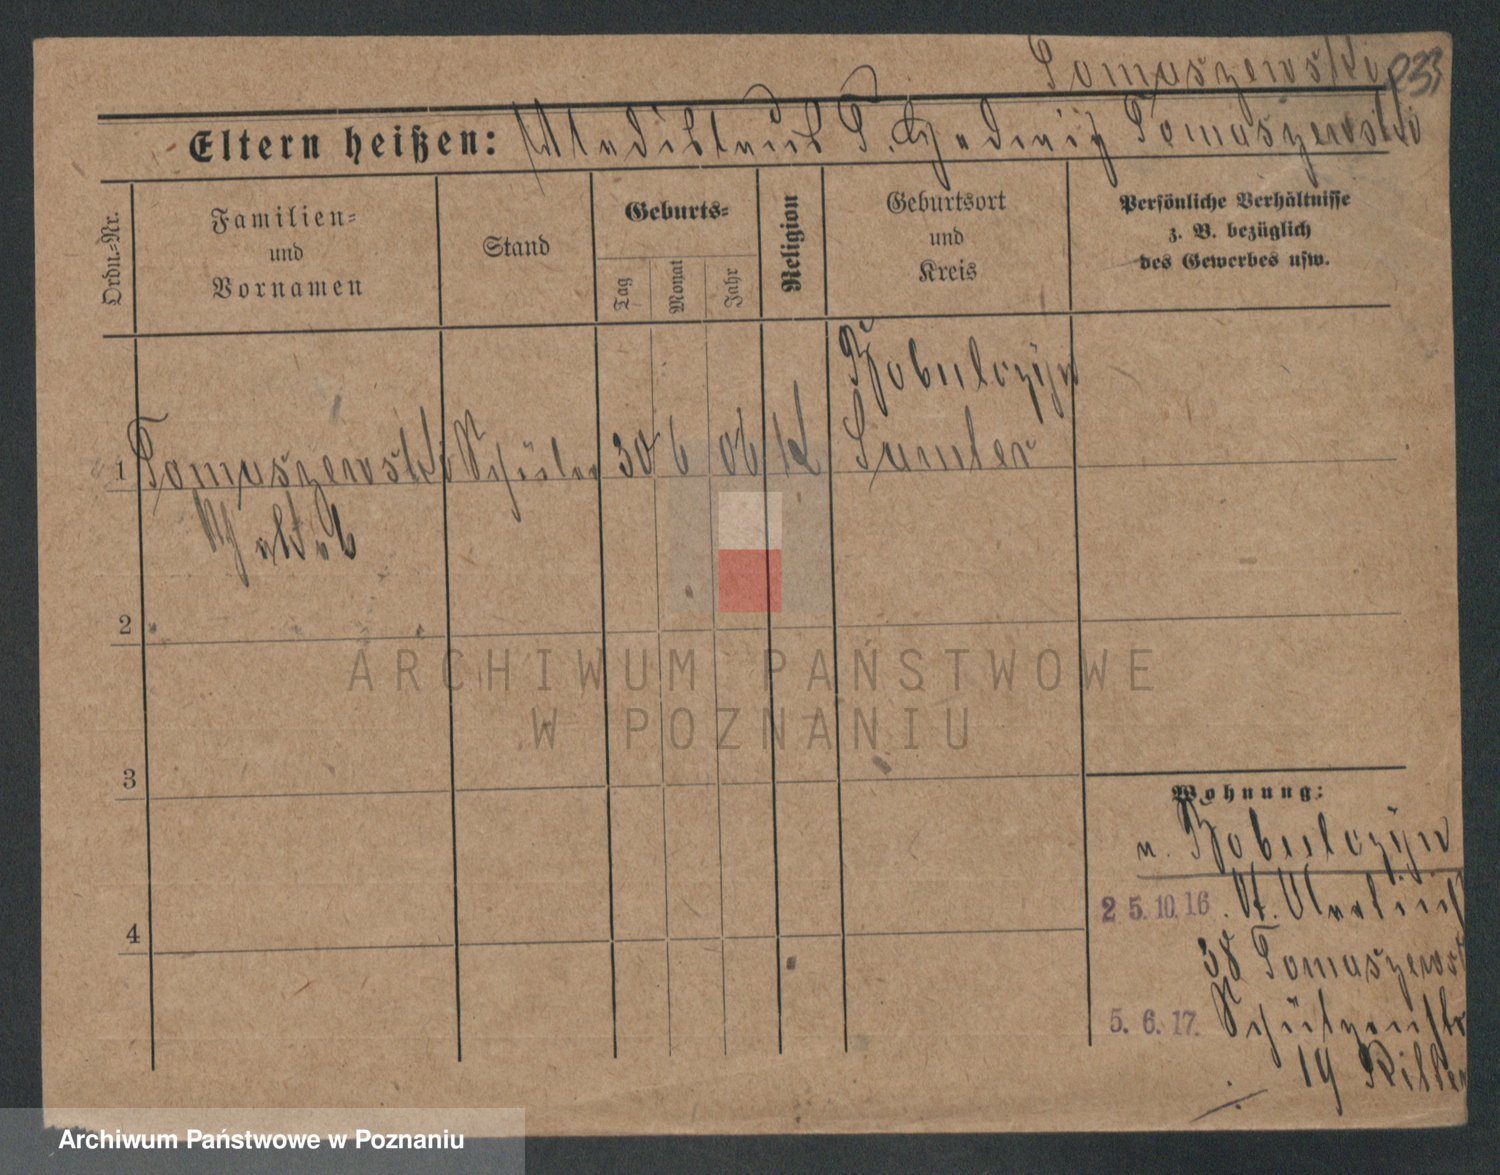 Tomaszewski
Eltern heißen: Wladislaus T. Hedwig Tomaszewski
Ordn.-Nr.
Familien-
und
Vornamen
Stand
Geburts-
Tag
Monat
Jahr
Religion
Geburtsort
und
Kreis
Persönliche Verhältnisse
z. B. bezüglich
des Gewerbes usw.
Bobulczyn
1 Tomaszewski Schüler 30 6 06 K Samter
Jakob
2
3
4
Wohnung:
n. Bobulczyn
25.10.16. St. Martinst
38 Tomaszewsk
5. 6. 17. Schützenstr
19
ARCHIWUM PAŃSTWOWE
W POZNANIU
Archiwum Państwowe w Poznaniu